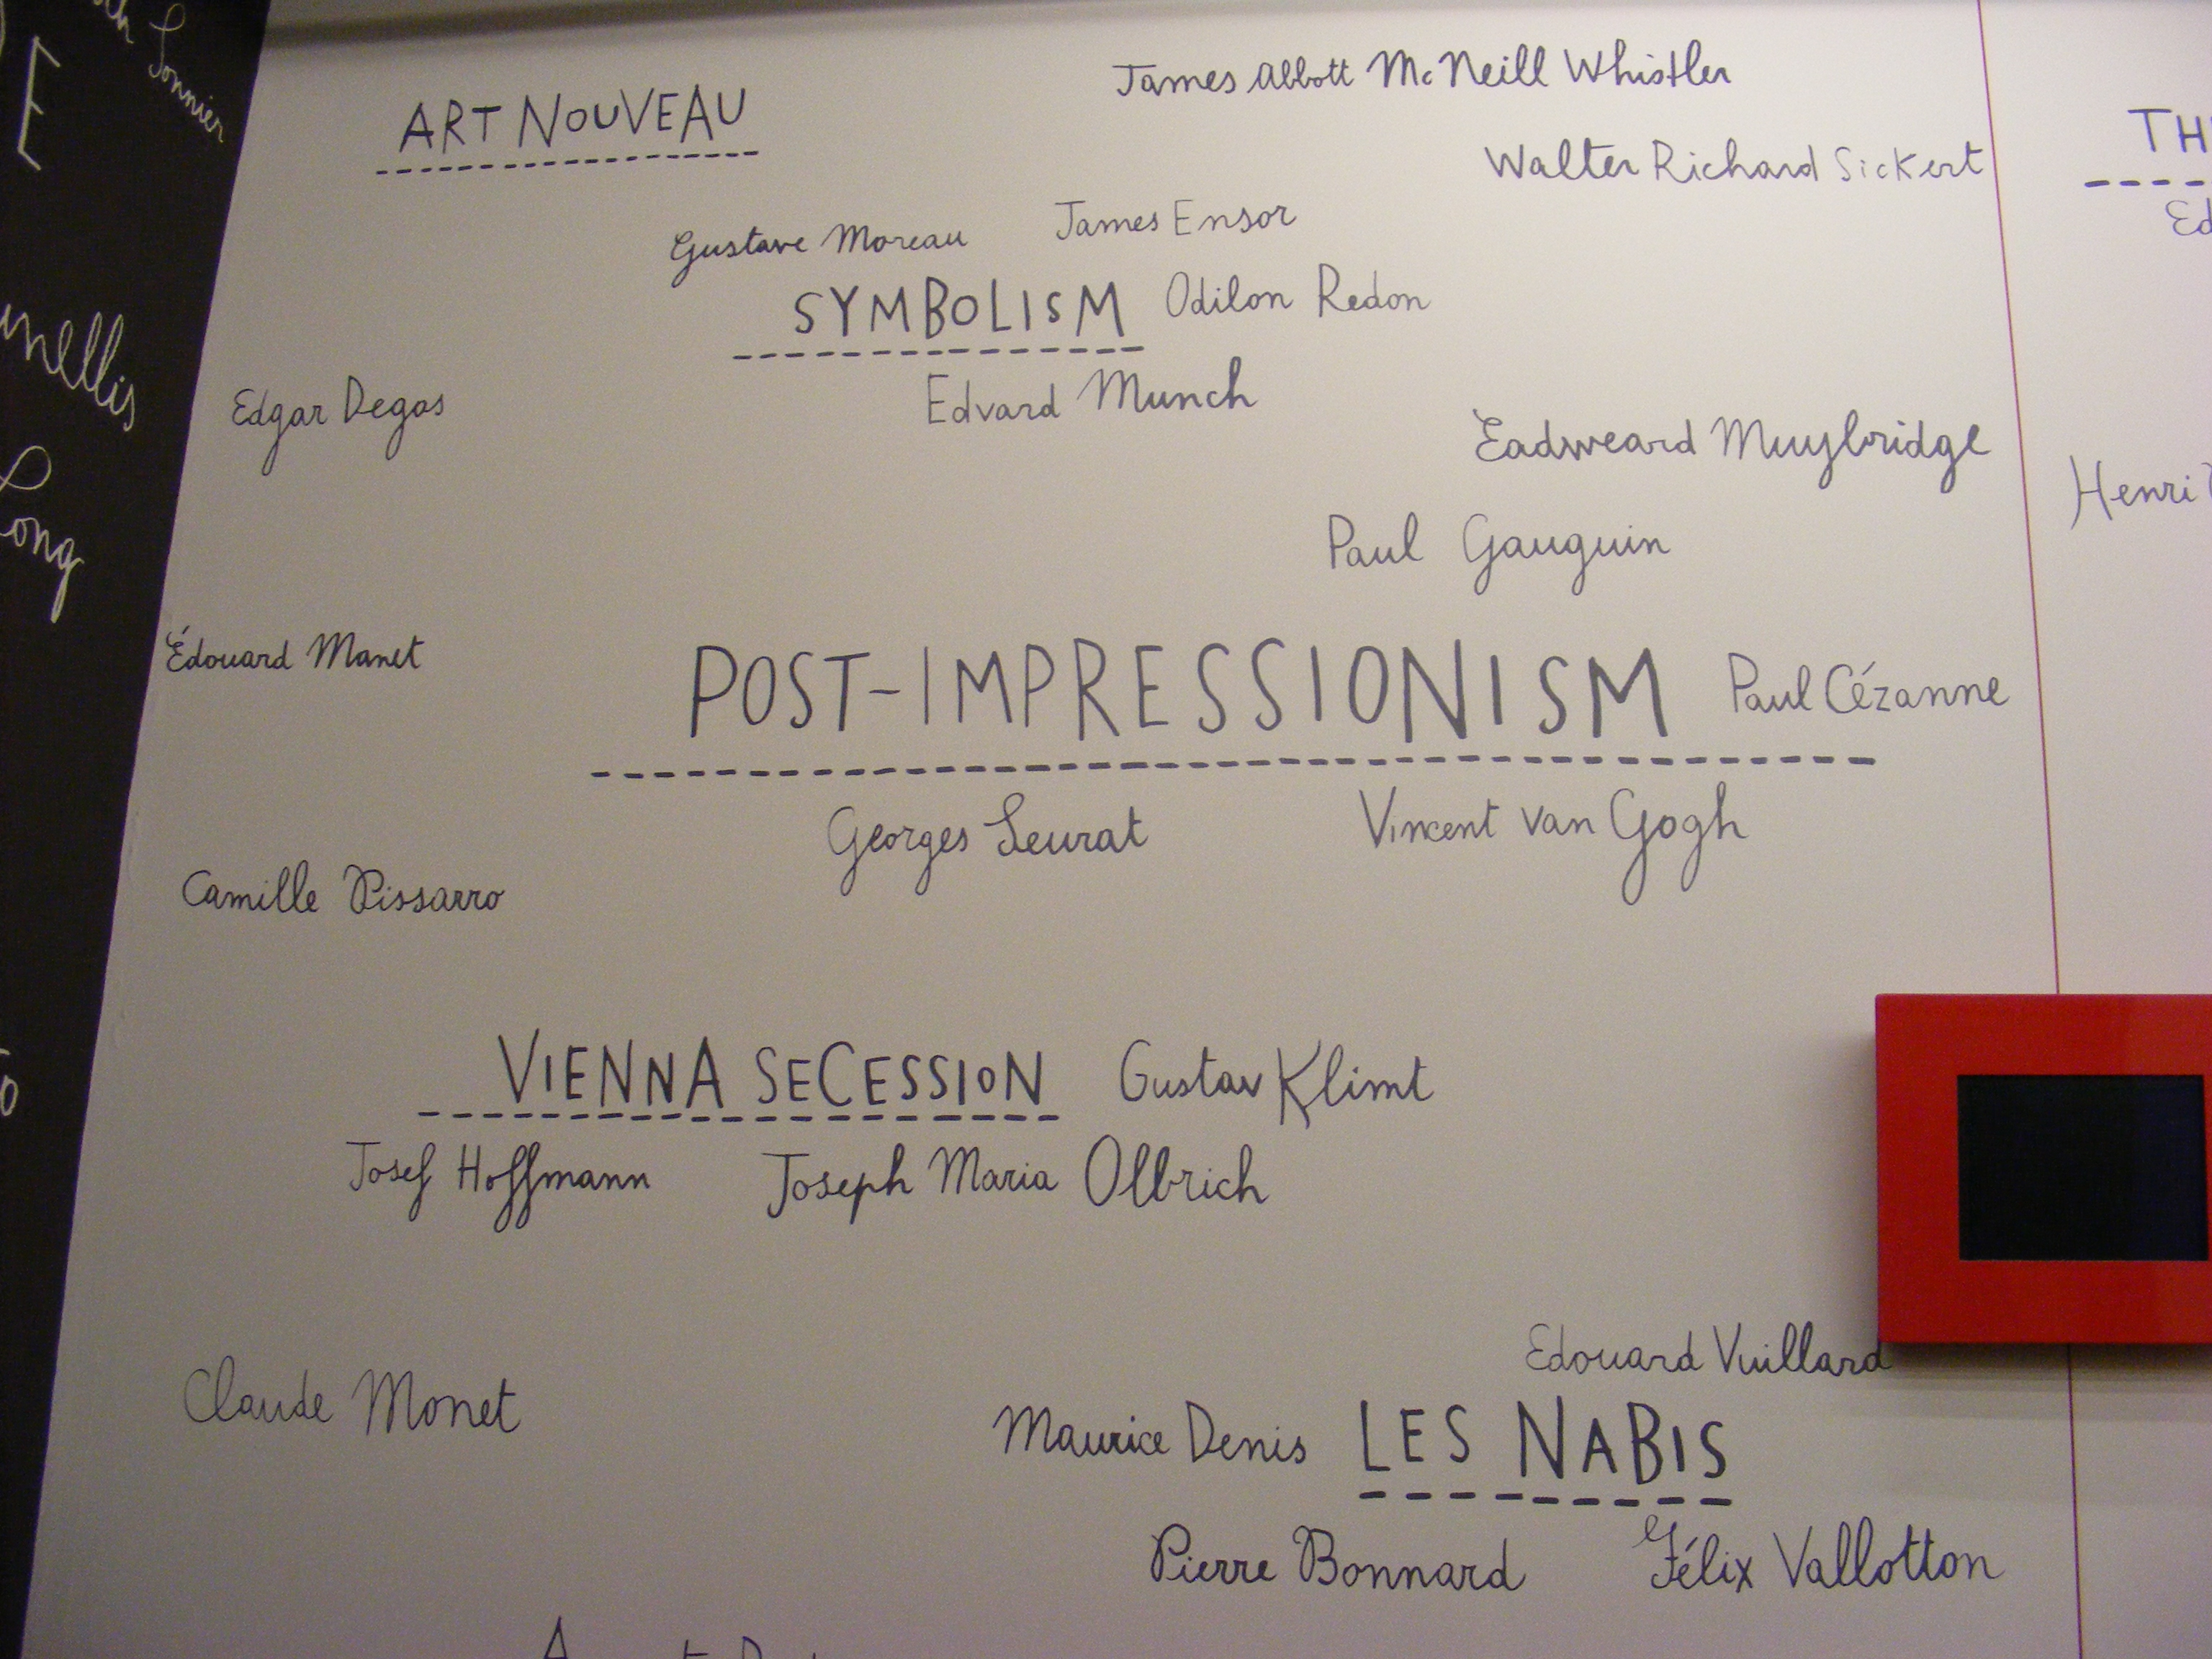 E
Sonnier
ART NOUVEAU
James Abbott McNeill Whistler
Walter Richard Sickert
Gustave Moreau
James Ensor
SYMBOLISM
Odilon Redon
Edgar Degas
Edvard Munch
Eadweard Muybridge
Henri
Long
Paul Gauguin
Édouard Manet
POST-IMPRESSIONISM
Paul Cézanne
Georges Seurat
Vincent van Gogh
Camille Pissarro
VIENNA SECESSION
Gustav Klimt
Josef Hoffmann
Joseph Maria Olbrich
Edouard Vuillard
Claude Monet
Maurice Denis
LES NABIS
Pierre Bonnard
Félix Vallotton